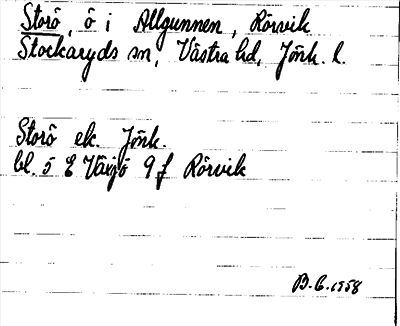 Storö, ö i Allgunnen, Rörvik
Stockaryds sn, Västra hd, Jönk. l.
Storö ek. Jönk.
bl. 5 E Växjö 9 f Rörvik
B. C. 1958